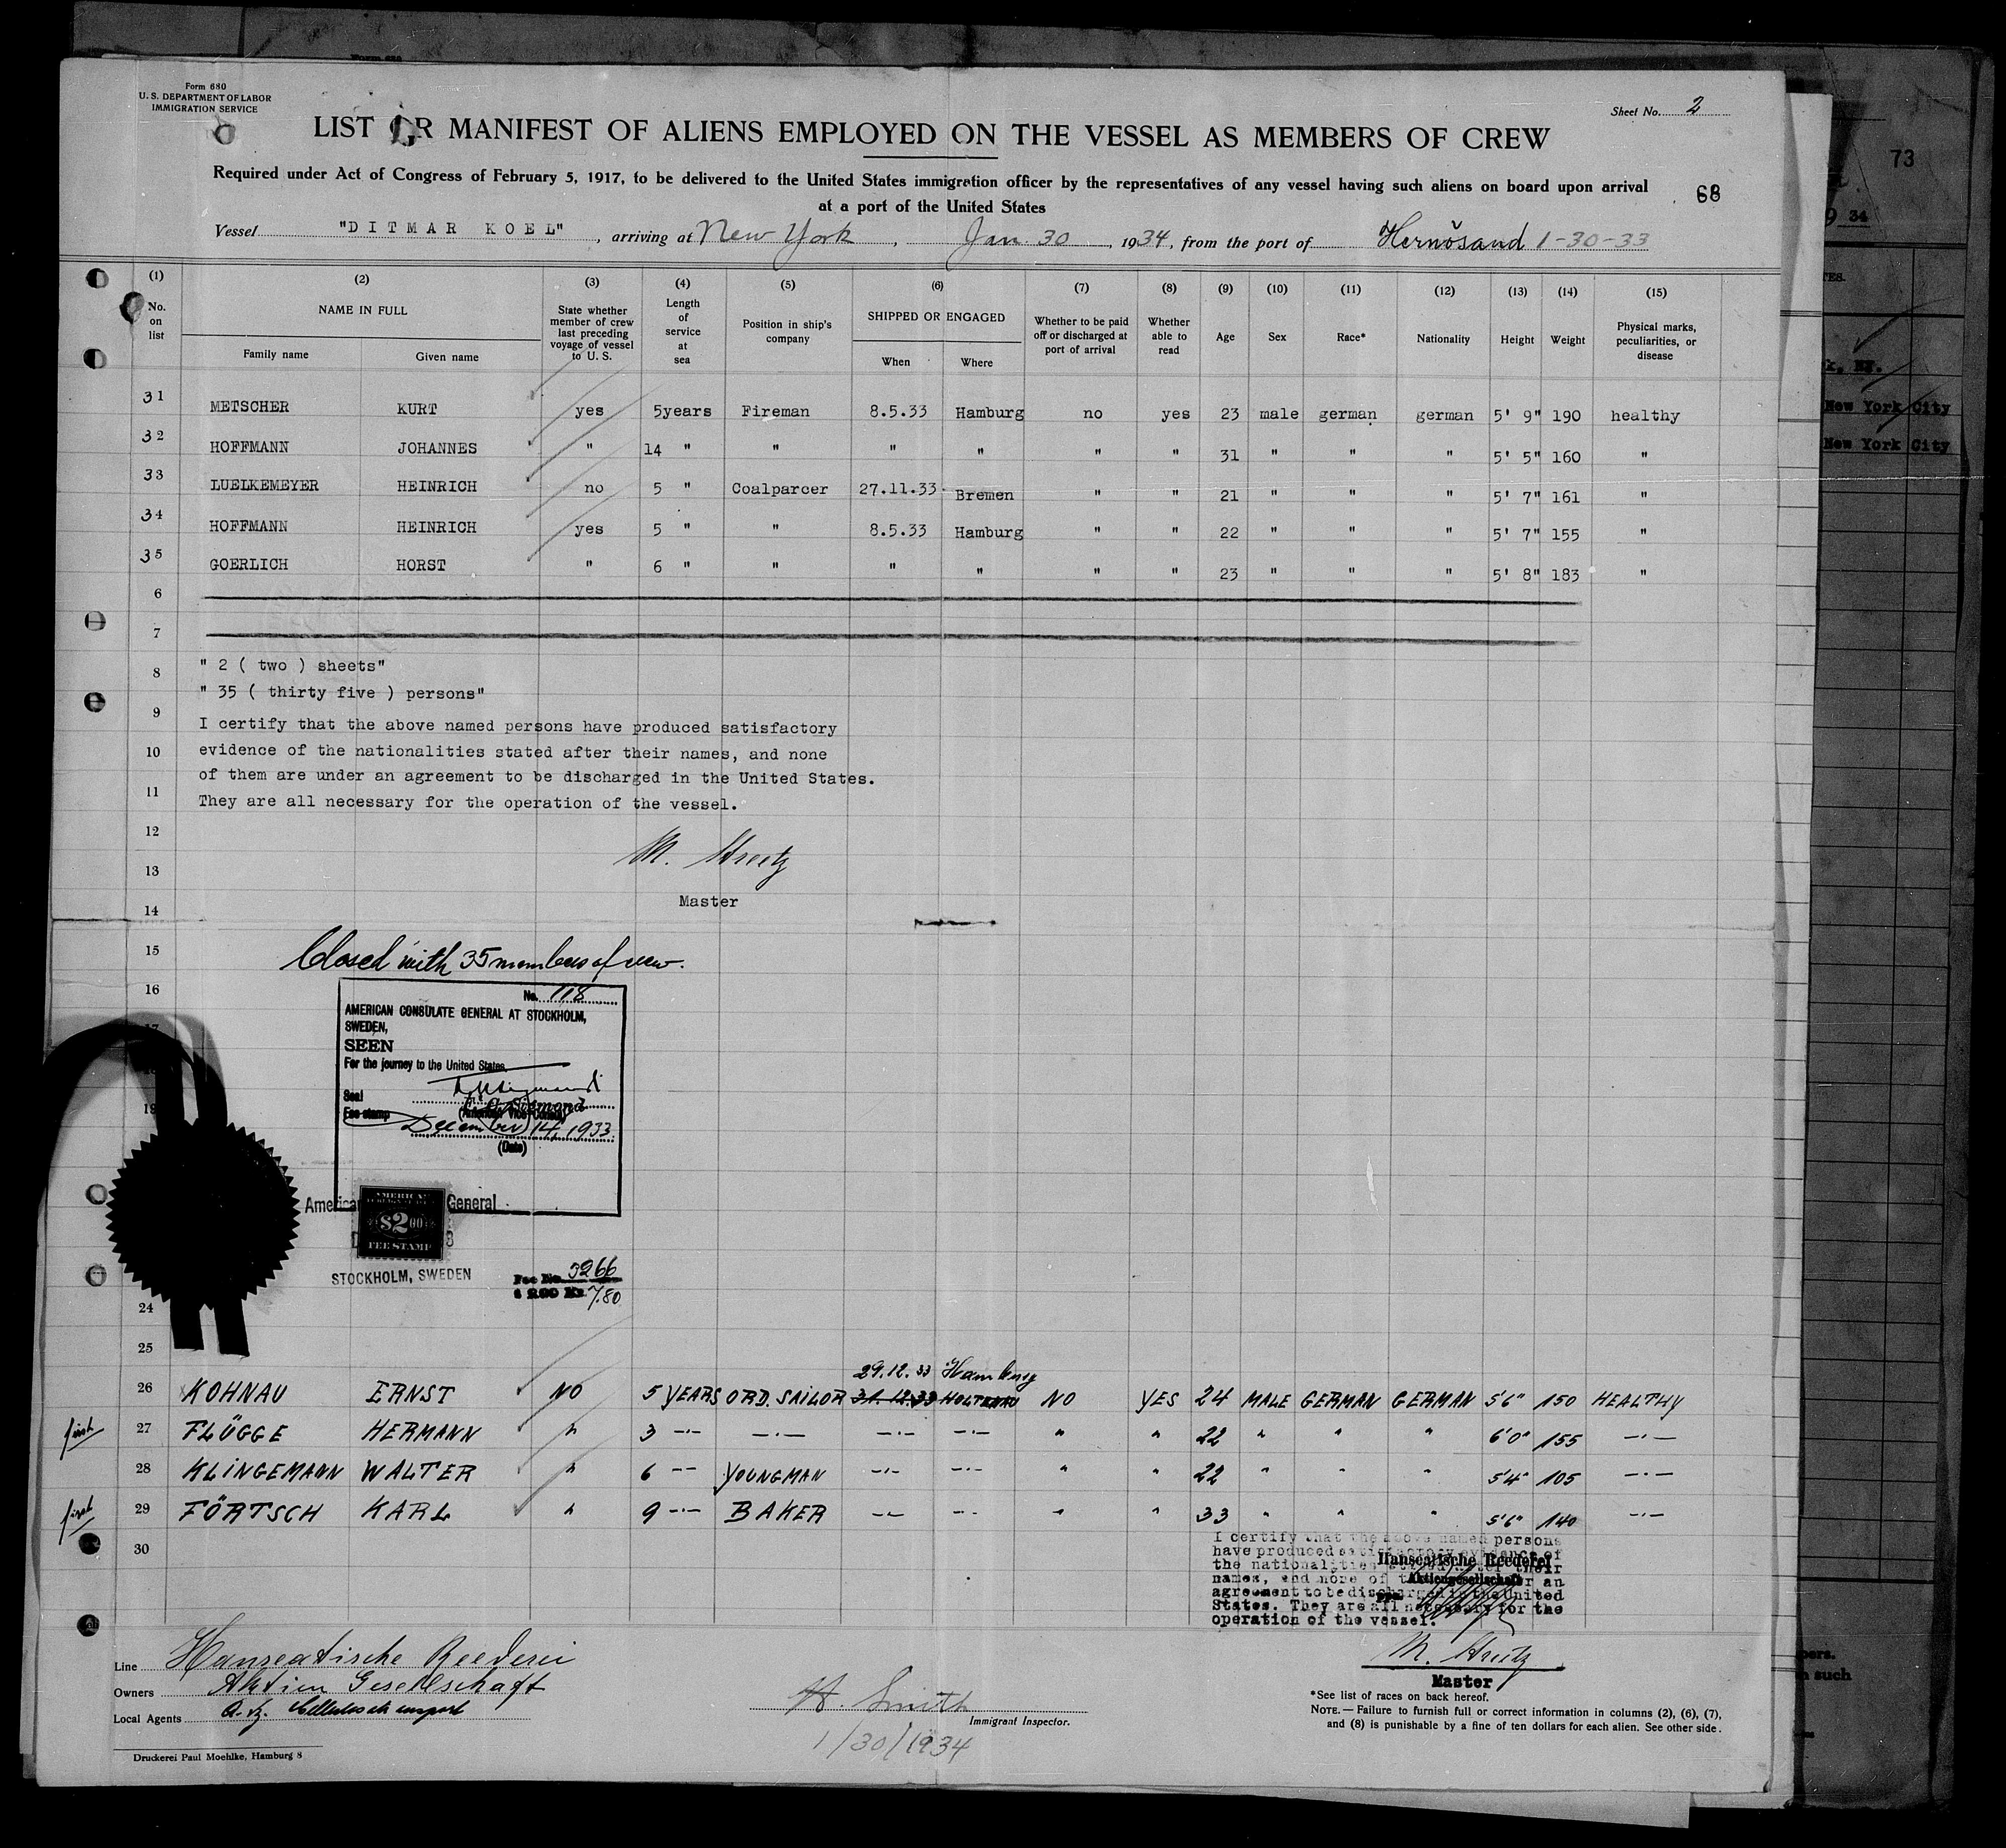 Form 680
U. S. DEPARTMENT OF LABOR
IMMIGRATION SERVICE
Sheet No. 2
LIST OR MANIFEST OF ALIENS EMPLOYED ON THE VESSEL AS MEMBERS OF CREW
Required under Act of Congress of February 5, 1917, to be delivered to the United States immigration officer by the representatives of any vessel having such aliens on board upon arrival
at a port of the United States
68
73
Vessel "DITMAR KOEL", arriving at New York, Jan. 30, 1934, from the port of Hernösand 1-30-33
9 34
(1) (2) (3) (4) (5) (6) (7) (8) (9) (10) (11) (12) (13) (14) (15)
No. on list
NAME IN FULL
Family name Given name
State whether member of crew last preceding voyage of vessel to U. S.
Length of service at sea
Position in ship's company
SHIPPED OR ENGAGED
When Where
Whether to be paid off or discharged at port of arrival
Whether able to read
Age
Sex
Race*
Nationality
Height
Weight
Physical marks, peculiarities, or disease
31 METSCHER KURT yes 5years Fireman 8.5.33 Hamburg no yes 23 male german german 5' 9" 190 healthy
32 HOFFMANN JOHANNES " 14 " " " " " " 31 " " " 5' 5" 160 "
33 LUELKEMEYER HEINRICH no 5 " Coalparcer 27.11.33 Bremen " " 21 " " " 5' 7" 161 "
34 HOFFMANN HEINRICH yes 5 " " 8.5.33 Hamburg " " 22 " " " 5' 7" 155 "
35 GOERLICH HORST " 6 " " " " " " 23 " " " 5' 8" 183 "
New York City
New York City
6
7
8 " 2 ( two ) sheets"
" 35 ( thirty five ) persons"
9 I certify that the above named persons have produced satisfactory
10 evidence of the nationalities stated after their names, and none
of them are under an agreement to be discharged in the United States.
11 They are all necessary for the operation of the vessel.
12
M. Streitz
13
Master
14
15 Closed with 35 members of crew.
16
No. 118
AMERICAN CONSULATE GENERAL AT STOCKHOLM,
SWEDEN,
SEEN
For the journey to the United States
Seal
Fee stamp
(American Vice Consul)
December 14, 1933
(Date)
17
19
American General
AMERICAN
$2 00
FEE STAMP
STOCKHOLM, SWEDEN
Fee No. 5266
7.80
24
25
29.12.33 Hamburg
26 KOHNAU ERNST NO 5 YEARS ORD. SAILOR 31.12.33 HOLTENAU NO YES 24 MALE GERMAN GERMAN 5'6" 150 HEALTHY
first 27 FLÜGGE HERMANN " 3 -·- -·- -·- -·- " " 22 " " " 6'0" 155 -·-
28 KLINGEMANN WALTER " 6 -- YOUNGMAN -·- -·- " " 22 " " " 5'4" 105 -·-
first 29 FÖRTSCH KARL " 9 -·- BAKER -- -·- " " 33 " " " 5'6" 140 -·-
30
I certify that the above named persons
have produced satisfactory evidence of
the nationalities their
names, and none of an
agreement to be discharged United
States. They are all necessary for the
operation of the vessel.
Hanseatische Reederei
Aktiengesellschaft
ppa.
M. Streitz
Master
Line Hanseatische Reederei
Owners Aktien Gesellschaft
Local Agents
H. Smith
Immigrant Inspector.
1/30/1934
*See list of races on back hereof.
NOTE.—Failure to furnish full or correct information in columns (2), (6), (7),
and (8) is punishable by a fine of ten dollars for each alien. See other side.
Druckerei Paul Moehlke, Hamburg 8